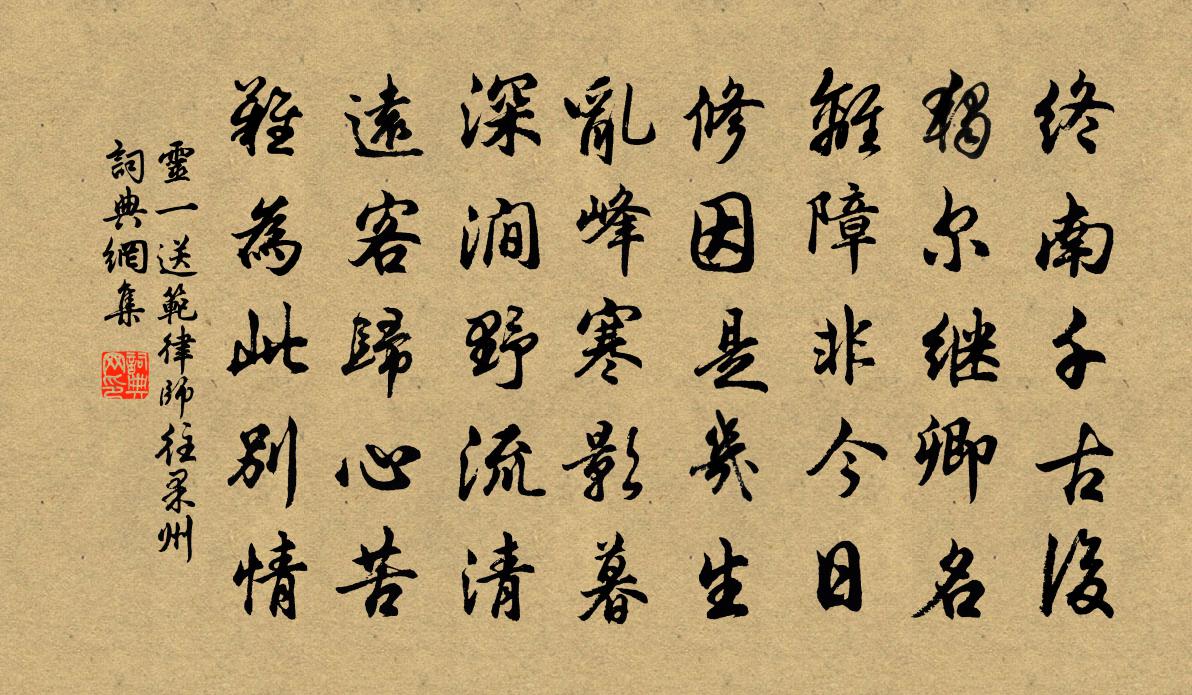 終南千古後
獨尔继卿名
離障非今日
修因是幾生
亂峰寒影暮
深澗野流清
遠客歸心苦
難為此別情
靈一送範律師往果州
詞典網集
詞典网印